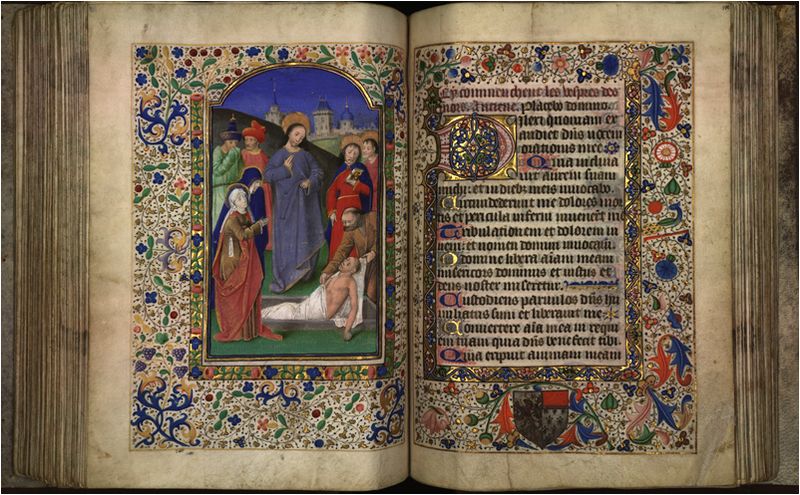 Cy commencent les vespres des
mors. Antiene. Placebo domino.
Dilexi quoniam ex
audiet dns vocem
orationis mee.
Quia inclina
vit aurem suam
michi: et in dieb; meis invocabo.
Circundederunt me dolores mor
tis et pericula inferni invenerut me
Tribulationem et dolorem in
veni: et nomen domini invocavi.
O domine libera aiam meam
misericors dominus et iustus et
deus noster miseretur.
Custodiens parvulos dns hu
miliatus sum et liberavit me.
Convertere aia mea in requi
em tuam quia dns benefecit tibi.
Quia eripuit animam meam